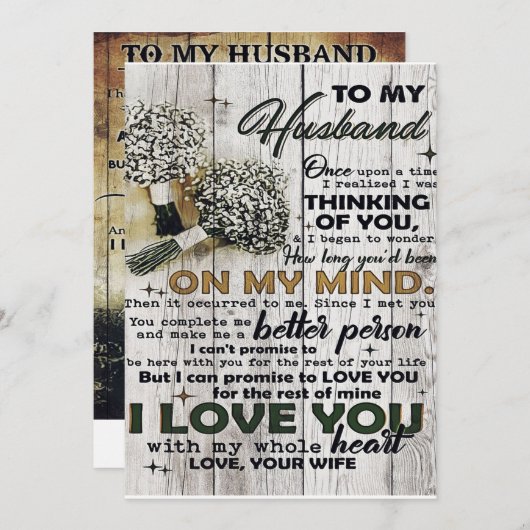 TO MY HUSBAND
TO MY
Husband
Once upon a time
I realized I was
THINKING
OF YOU,
& I began to wonder
How long you'd been
ON MY MIND.
Then it occurred to me. Since I met you
You complete me
and make me a better person
I can't promise to
be here with you for the rest of your life
But I can promise to LOVE YOU
for the rest of mine
I LOVE YOU
with my whole heart
LOVE, YOUR WIFE